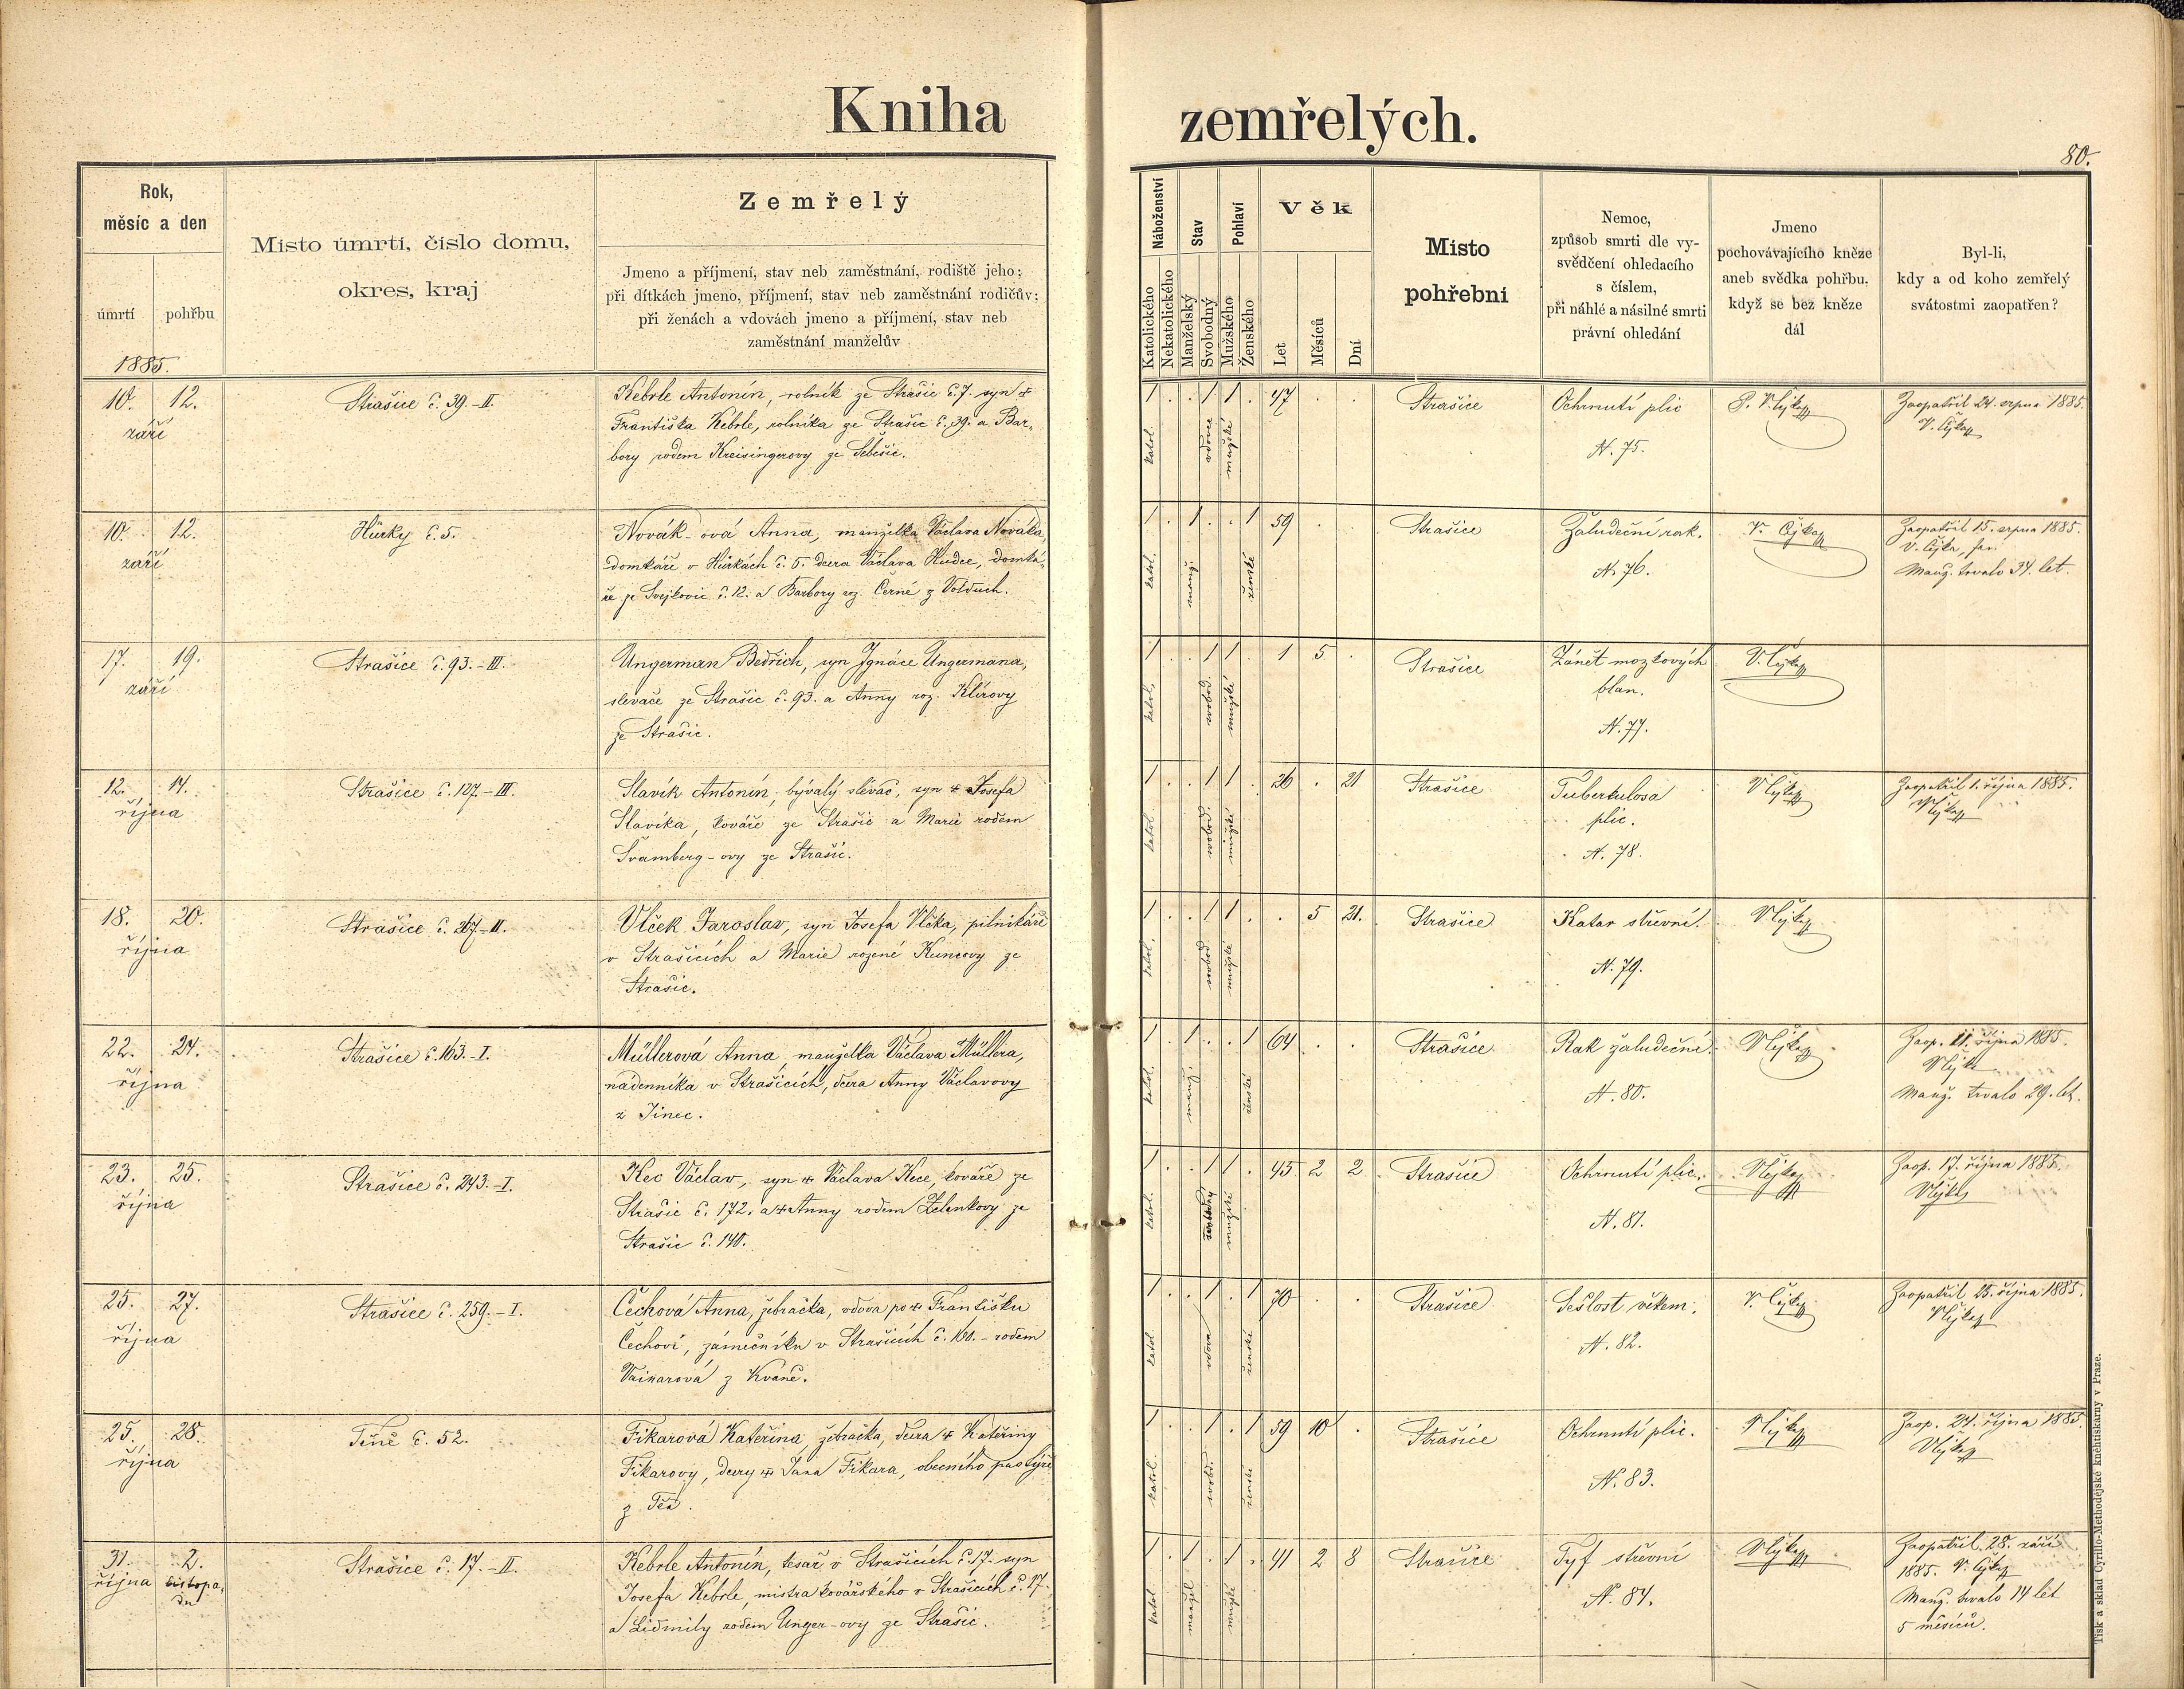 Kniha zemřelých.
80.
Rok,
měsíc a den
úmrtí
pohřbu
1885.
Místo úmrtí, číslo domu,
okres, kraj
Zemřelý
Jmeno a příjmení, stav neb zaměstnání, rodiště jeho;
při dítkách jmeno, příjmení, stav neb zaměstnání rodičův;
při ženách a vdovách jmeno a příjmení, stav neb
zaměstnání manželův
Náboženství
Katolického
Nekatolického
Stav
Manželský
Svobodný
Pohlaví
Mužského
Ženského
Věk
Let
Měsíců
Dní
Místo
pohřební
Nemoc,
způsob smrti dle vy-
svědčení ohledacího
s číslem,
při náhlé a násilné smrti
právní ohledání
Jmeno
pochovávajícího kněze
aneb svědka pohřbu,
když se bez kněze
dál
Byl-li,
kdy a od koho zemřelý
svátostmi zaopatřen?
10. 12.
září
Strašice č. 39.-II.
Kebrle Antonín, rolník ze Strašic č. 7. syn
Františka Kebrle, rolníka ze Strašic č. 39. a Bar-
bory rodem Kreisingerovy ze Těšic.
katol.
vdovec
mužské
1 . . 1 1 . 47 . .
Strašice
Ochrnutí plic
N. 75.
Zaopatřil 24. srpna 1885.
V. Čejka
10. 12.
září
Hůrky č. 5.
Novák-ová Anna, manželka Václava Nováka,
domkáře v Hůrkách č. 5. dcera Václava Hudce, domká-
ře ze Svejkovic č. 12. a Barbory roz. Černé z Volduch.
katol.
manž.
ženské
1 . 1 . . 1 59 .
Strašice
Žaludeční rak.
N. 76.
V. Čejka
Zaopatřil 15. srpna 1885.
V. Čejka, far.
Manž. trvalo 34. let.
17. 19.
září
Strašice č. 93.-III.
Ungerman Bedřich, syn Ignáce Ungermana,
slevače ze Strašic č. 93. a Anny roz. Klírovy
ze Strašic.
katol.
svobod.
mužské
1 . . 1 1 . 1 5 .
Strašice
Zánět mozkových
blan.
N. 77.
V. Čejka
12. 14.
října
Strašice č. 127.-III.
Slavík Antonín, bývalý slévač, syn Josefa
Slavíka, kováře ze Strašic a Marie rodem
Švamberg-ovy ze Strašic.
katol.
svobod.
mužské
1 . . 1 1 . 26 . 21
Strašice
Tuberkulosa
plic.
N. 78.
V. Čejka
Zaopatřil 1. října 1885.
V. Čejka
18. 20.
října
Strašice č. 267-II.
Vlček Jaroslav, syn Josefa Vlčka, pilnikáře
v Strašicích a Marie rozené Kuncovy ze
Strašic.
katol.
svobod
mužské
1 . . 1 1 . . 5 21.
Strašice
Katar střevní.
N. 79.
V. Čejka
22. 24.
října
Strašice č. 163.-I.
Müllerová Anna, manželka Václava Müllera,
nádenníka v Strašicích, dcera Anny Václavovy
z Jinec.
katol.
manž.
ženské
1 . 1 . . 1 64 . .
Strašice
Rak žaludeční.
N. 80.
V. Čejka
Zaop. 11. října 1885.
V. Čejka
Manž. trvalo 29. let.
23. 25.
října
Strašice č. 243.-I.
Kec Václav, syn Václava Kece, kováře ze
Strašic č. 172. a Anny rodem Zelenkovy ze
Strašic č. 140.
katol.
mužské
1 . . 1 1 . 45 2 2
Strašice
Ochrnutí plic.
N. 81.
V. Čejka
Zaop. 17. října 1885.
V. Čejka
25. 27.
října
Strašice č. 259.-I.
Čechová Anna, žebračka, vdova po Františku
Čechovi, zámečníku v Strašicích č. 160.- rodem
Vainarová z Kváně.
katol
vdova
ženské
1 . . 1 . 1 70 . .
Strašice
Sešlost věkem.
N. 82.
V. Čejka
Zaopatřil 23. října 1885.
V. Čejka
25. 28.
října
Těně č. 52.
Fikarová Kateřina, žebračka, dcera Kateřiny
Fikarovy, dcery Jana Fikara, obecního pastýře
z Těň.
katol.
svobd.
ženské
1 . . 1 . 1 59 10 .
Strašice
Ochrnutí plic.
N. 83.
V. Čejka
Zaop. 24. října 1885
V. Čejka
31. 2.
října listopa-
du
Strašice č. 17.-II.
Kebrle Antonín, tesař v Strašicích č. 17. syn
Josefa Kebrle, mistra kovářského v Strašicích č. 17.
a Lidmily rodem Unger-ovy ze Strašic.
katol
manžel
mužské
1 . 1 . 1 . 41 2 8
Strašice
Tyf střevní
N. 84.
V. Čejka
Zaopatřil 28. září
1885. V. Čejka
Manž. trvalo 14 let
5 měsíců.
Tisk a sklad Cyrillo-Methodějské kněhtiskárny v Praze.